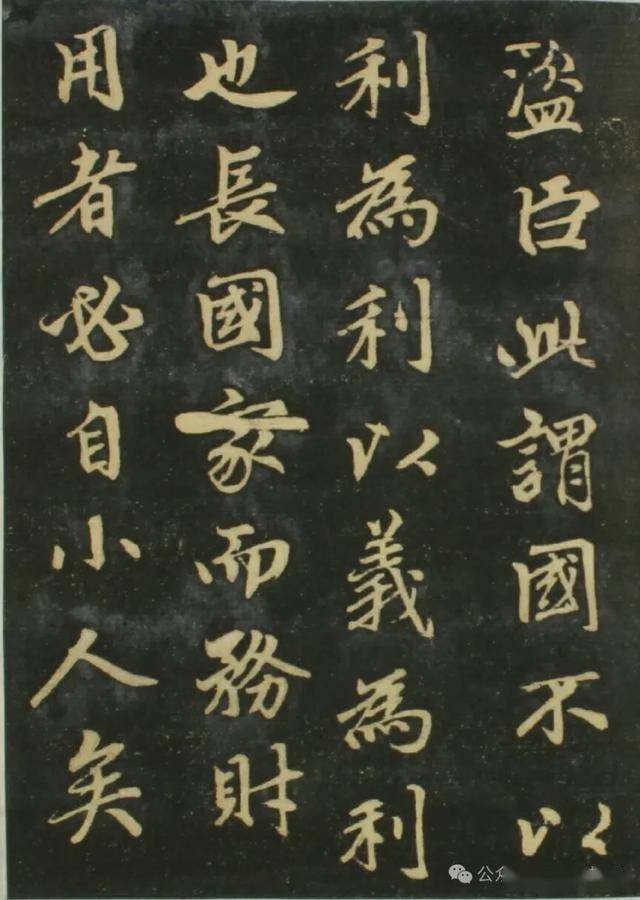 盜臣此謂國不以
利為利以義為利
也長國家而務財
用者必自小人矣
公众